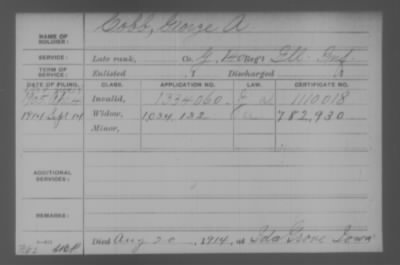 Cobb, George A
NAME OF SOLDIER:
SERVICE: Late rank, Co. G, 140 Reg't Ill. Inf.
TERM OF SERVICE: Enlisted , 1 Discharged , 1
DATE OF FILING. CLASS. APPLICATION NO. LAW. CERTIFICATE NO.
1905 4 Invalid, 1334060 1110018
1914 Sept 14 Widow, 1,034,132 782,930
Minor,
ADDITIONAL SERVICES:
REMARKS:
Died Aug 20, 1914, at Ida Grove Iowa